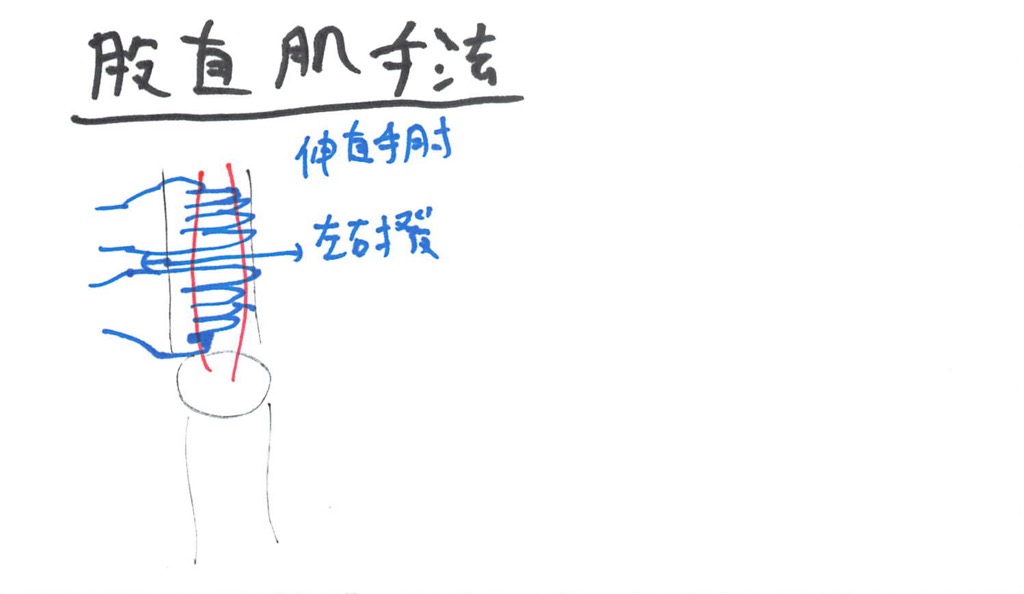 股直肌手法
伸直手肘
左右撥